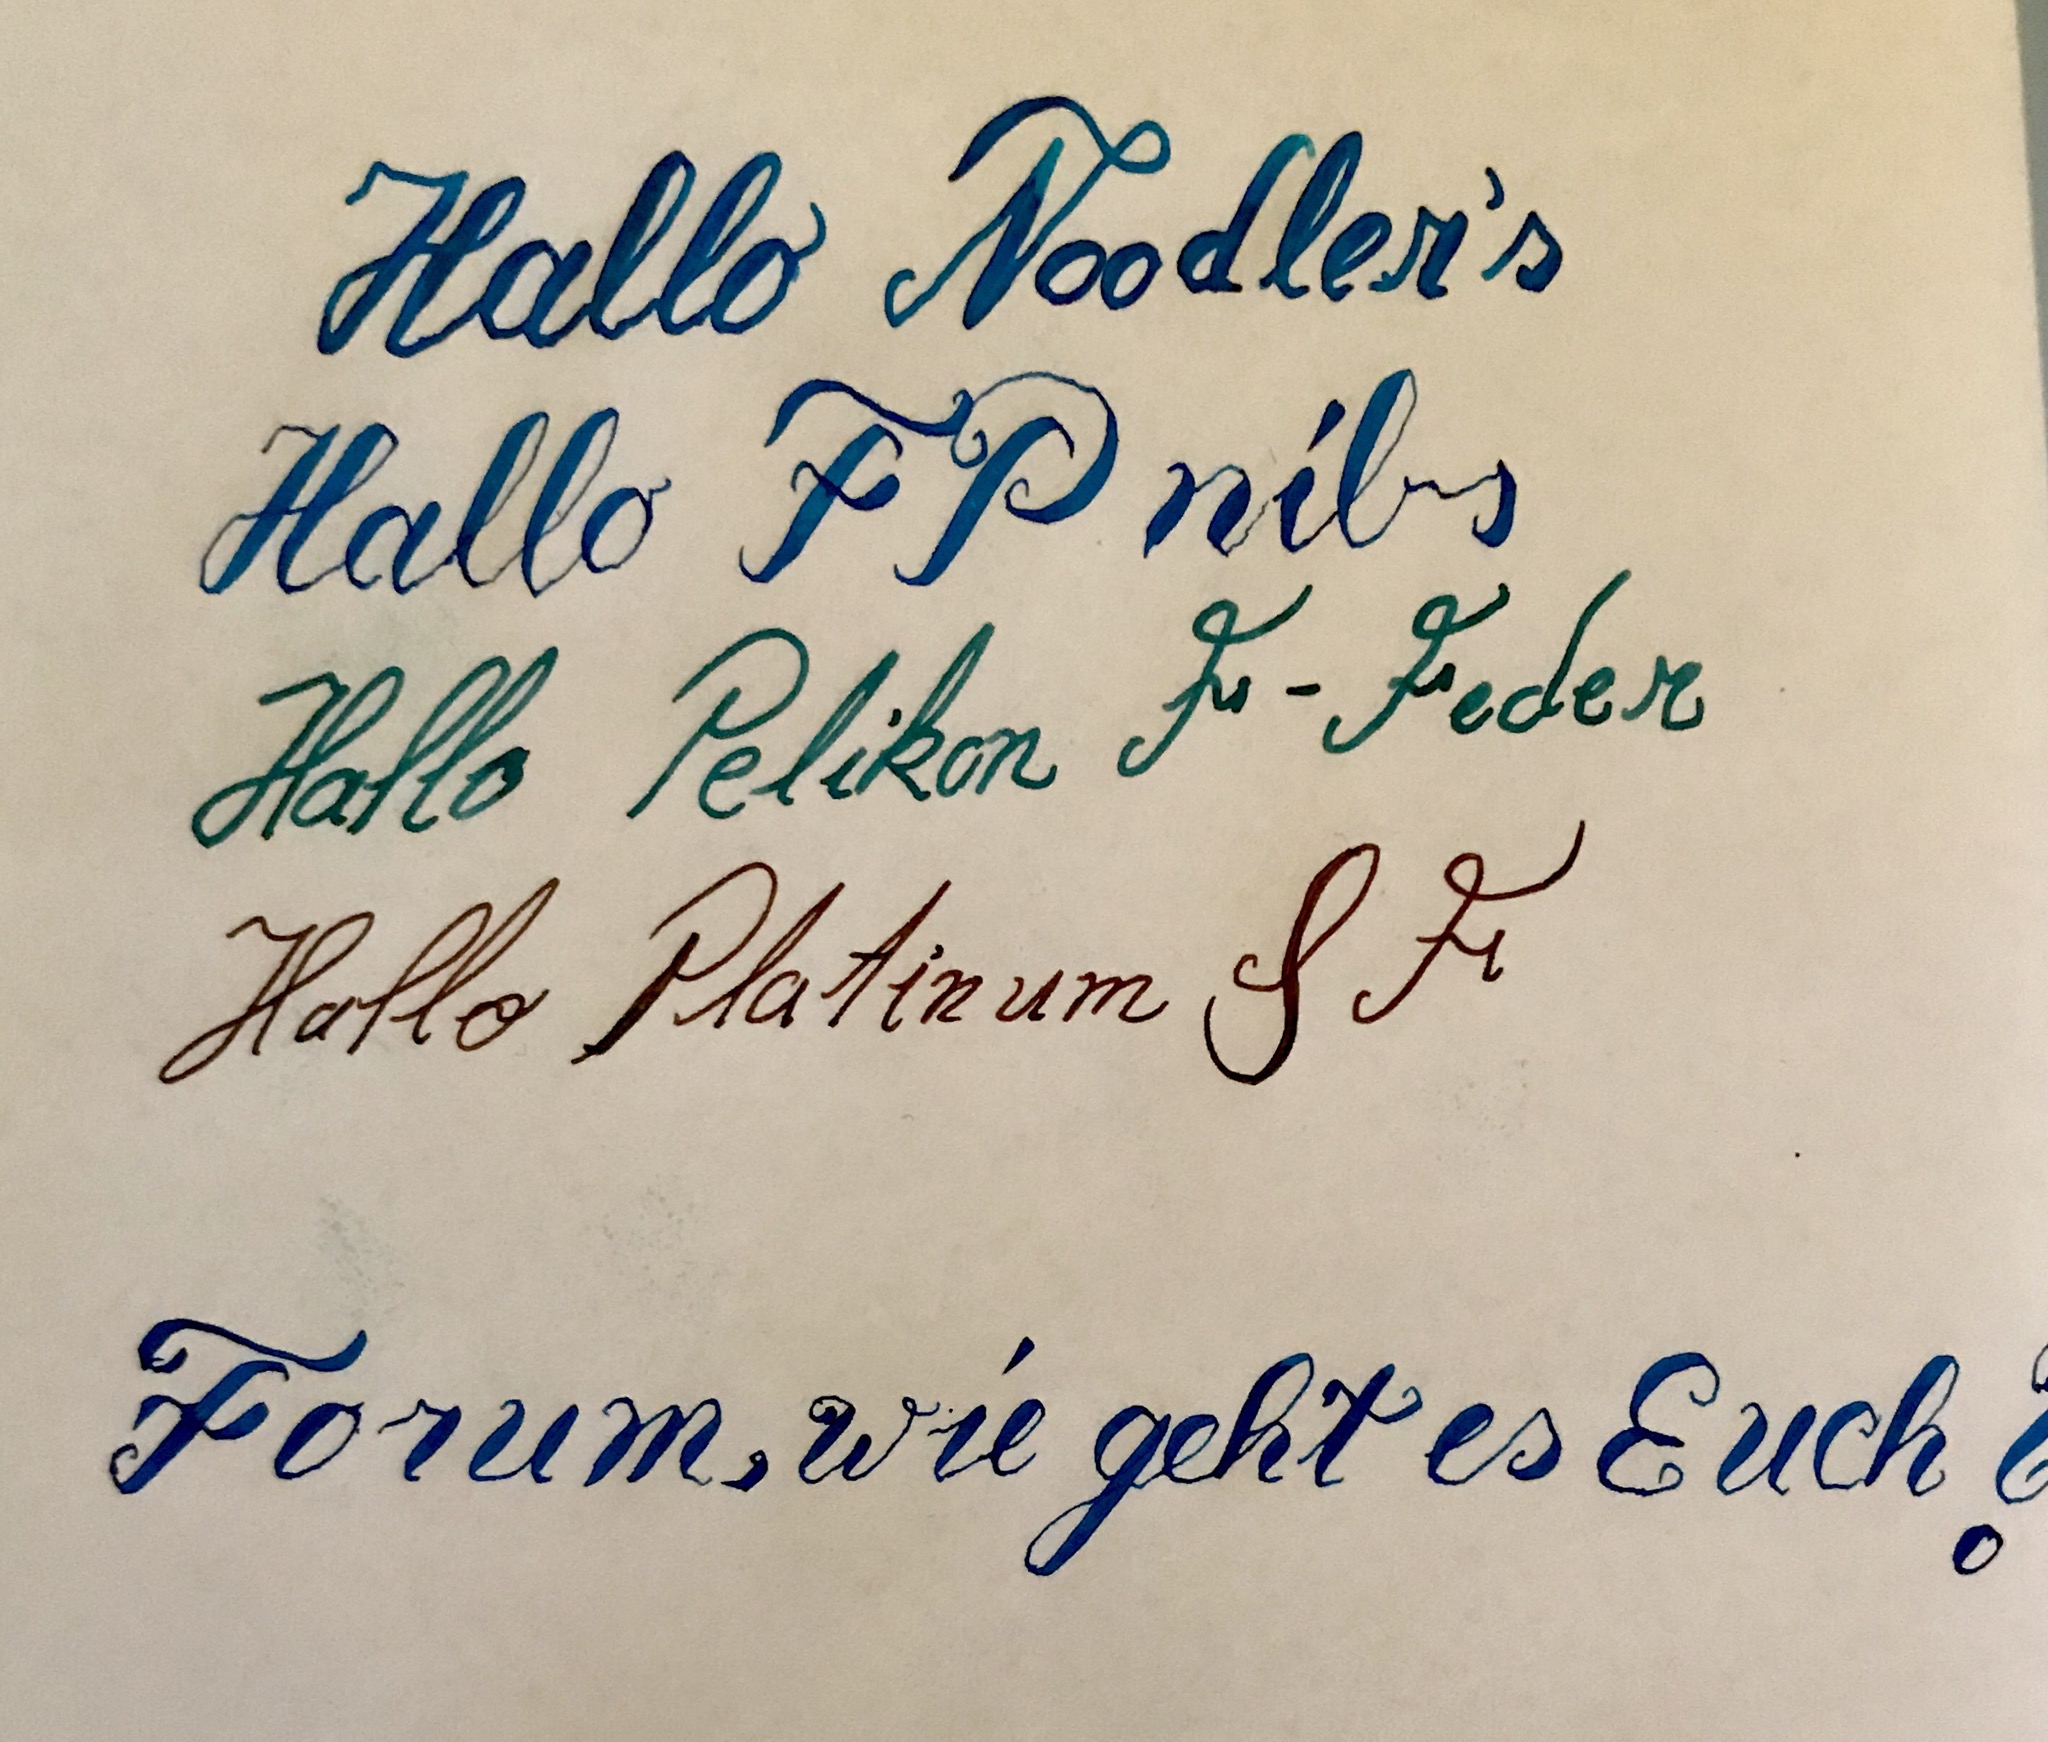 Hallo Noodler's
Hallo FP nibs
Hallo Pelikan F-Feder
Hallo Platinum SF
Forum, wie geht es Euch?